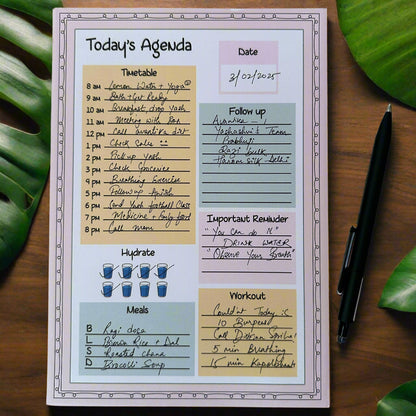 Today's Agenda
Date
3/02/2025
Timetable
8 am Lemon Water + Yoga
9 am Bath + Get Ready
10 am Breakfast, drop Yash
11 am Meeting with
12 pm Call avantika dirt
1 pm Check Sales
2 pm Pick up Yash
3 pm Check Groceries
4 pm Breathing Exercise
5 pm Follow up
6 pm Yash Football Class
7 pm Medicine + Family
8 pm Call Mom
Follow up
Avantika
Yashashvi's Team
Prabhuji
Razi bulk
silk Delhi
Important Reminder
"You can do it"
DRINK WATER
"Observe Your Breath"
Hydrate
Meals
B Ragi dosa
L Rice + Dal
S Roasted chana
D Brocolli Soup
Workout
Couldn't Today is
10 Burpees
Call
5 min Breathing
15 min Kapalbhati